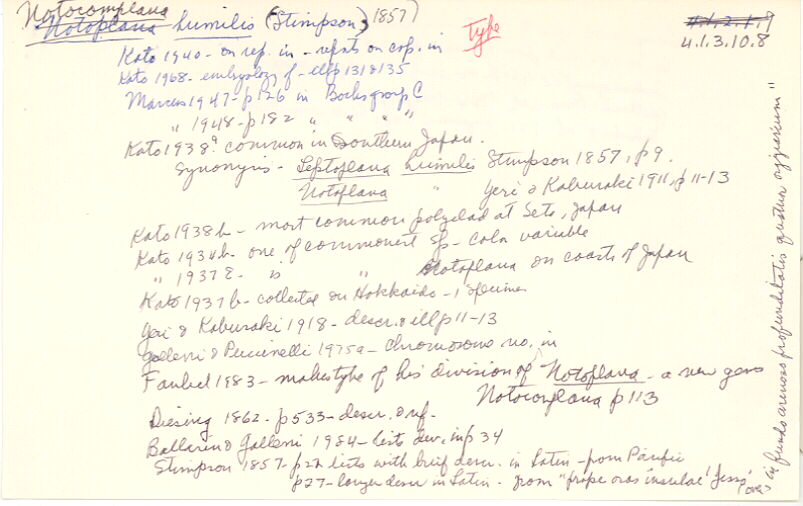 Notocomplana
Notoplana humilis (Stimpson, 1857)
Type
4.1.2.1.9
4.1.3.10.8
Kato 1940 - on rep. in - repts on cop. in
Kato 1968 - embryology of - ill p 131 & 135
Marcus 1947 - p 126 in Bocks group C
" 1948 - p 182 " " " "
Kato 1938a common in Southern Japan.
Synonyms - Leptoplana humilis Stimpson 1857, p 9.
Notoplana " Yeri & Kaburaki 1911, p 11-13
Kato 1938b - most common polyclad at Seto, Japan
Kato 1934b - one of commonest sp - color variable
" 1937 - " " Notoplana on coasts of Japan
Kato 1937b - collected on Hokkaido - 1 specimen
Yeri & Kaburaki 1918 - descr. & ill p 11-13
Galleni & Puccinelli 1975a - chromosome no. in
Faubel 1983 - makes type of his division of Notoplana - a new genus
Notocomplana p 113
Diesing 1862 - p 533 - descr. & ref.
Ballarin & Galleni 1984 - lists dev. in p 34
Stimpson 1857 - p 22 lists with brief descr. in Latin - from Pacific
p 27 - longer descr in Latin - from "prope oras insulae 'Jesso'
(over)
in fundo arenoso profunditatis quatuor orgyarum"